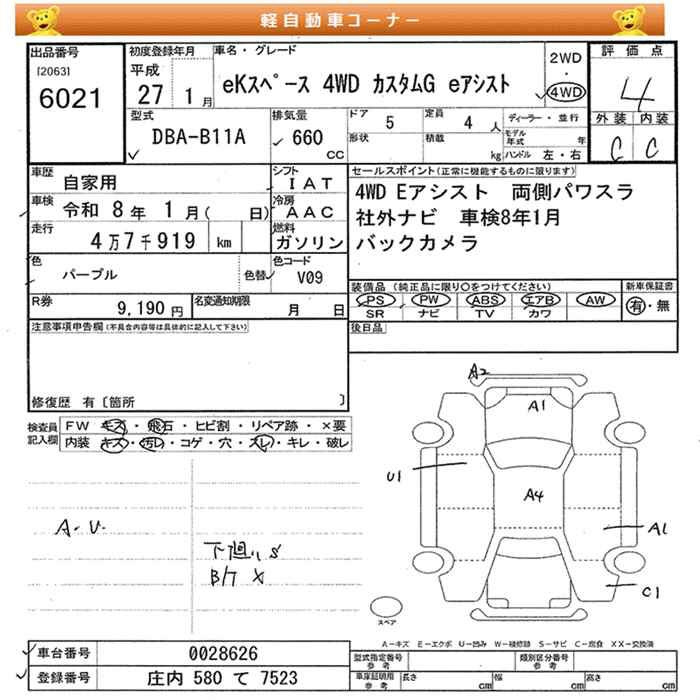 軽自動車コーナー
出品番号
[2063]
6021
初度登録年月
平成
27 1月
車名・グレード
eKスペース 4WD カスタムG eアシスト
2WD
・
4WD
評価点
4
外装 内装
C C
型式
DBA-B11A
排気量
660
CC
ドア 5
定員 4 人
形状
積載 kg
ディーラー・並行
モデル年式 年
ハンドル 左・右
車歴 自家用
シフト IAT
車検 令和 8年 1月( 日)
冷房 AAC
走行 4万7千919 km
燃料 ガソリン
色 パープル
色替
色コード V09
R券 9,190円
名変通知期限 月 日
セールスポイント(正常に機能するものに限ります)
4WD Eアシスト 両側パワスラ
社外ナビ 車検8年1月
バックカメラ
装備品(純正品に限り〇をつけてください)
PS PW ABS エアB AW
SR ナビ TV カワ
新車保証書
有・無
後日品
注意事項申告欄(不具合内容等は具体的に記入して下さい)
修復歴 有〔箇所 〕
検査員記入欄
FW キズ・飛石・ヒビ割・リペア跡・×要
内装 キズ・汚レ・コゲ・穴・スレ・キレ・破レ
A・U
下廻りS
B/T X
A2
A1
U1
A4
A1
C1
スペア
A-キズ E-エクボ U-凹み W-補修跡 S-サビ C-腐食 XX-交換済
車台番号 0028626
登録番号 庄内 580 て 7523
型式指定番号 参考
類別区分番号 参考
車庫証明用 参考
長さ cm
幅 cm
高さ cm